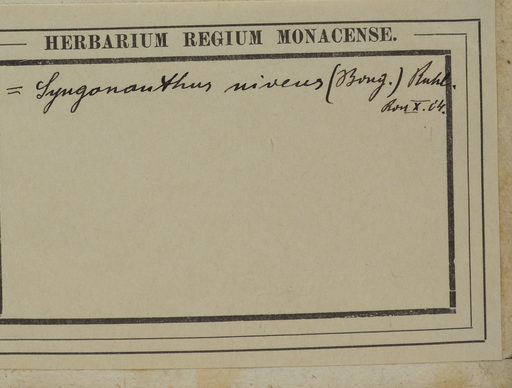 HERBARIUM REGIUM MONACENSE.
= Syngonanthus niveus (Bong.) Ruhl.
X. 04.